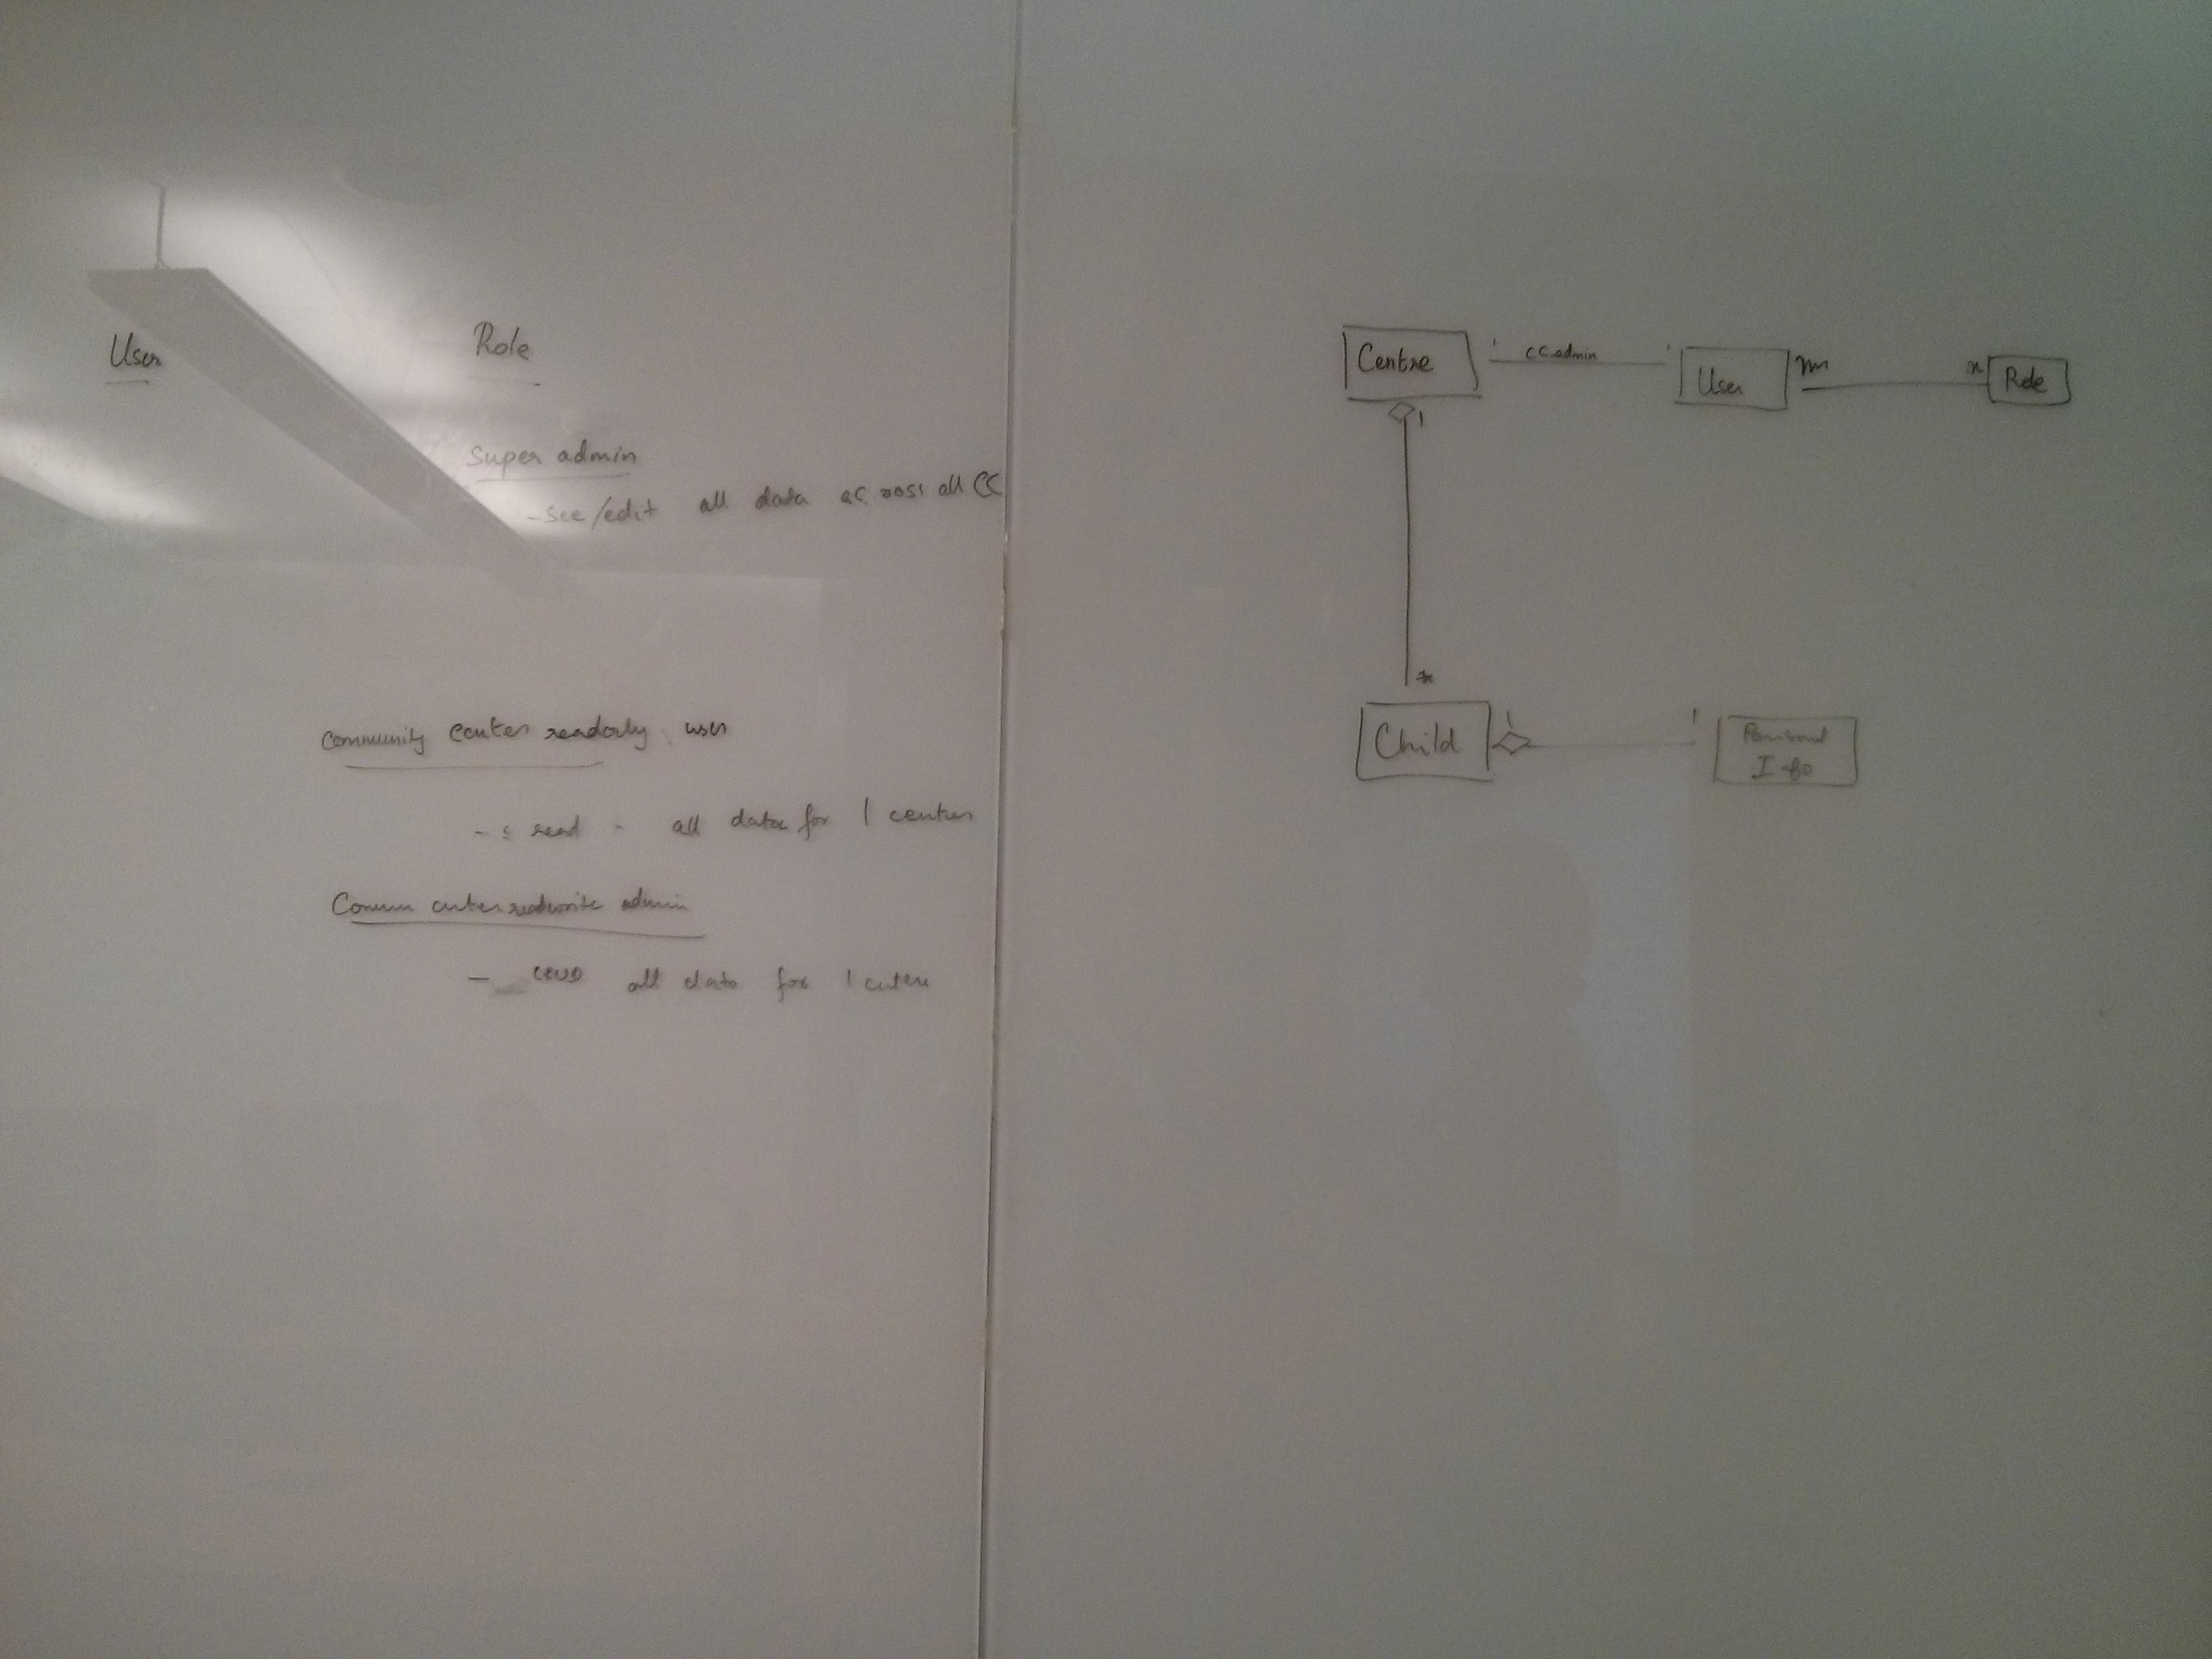 User
Role
Super admin
- see/edit all data across all CC
Community center readonly user
- read - all data for 1 center
Comm center readwrite admin
- CRUD all data for 1 center
Centre
1 CC admin 1
User
m n
Role
1
*
Child
1 1
Personal
Info